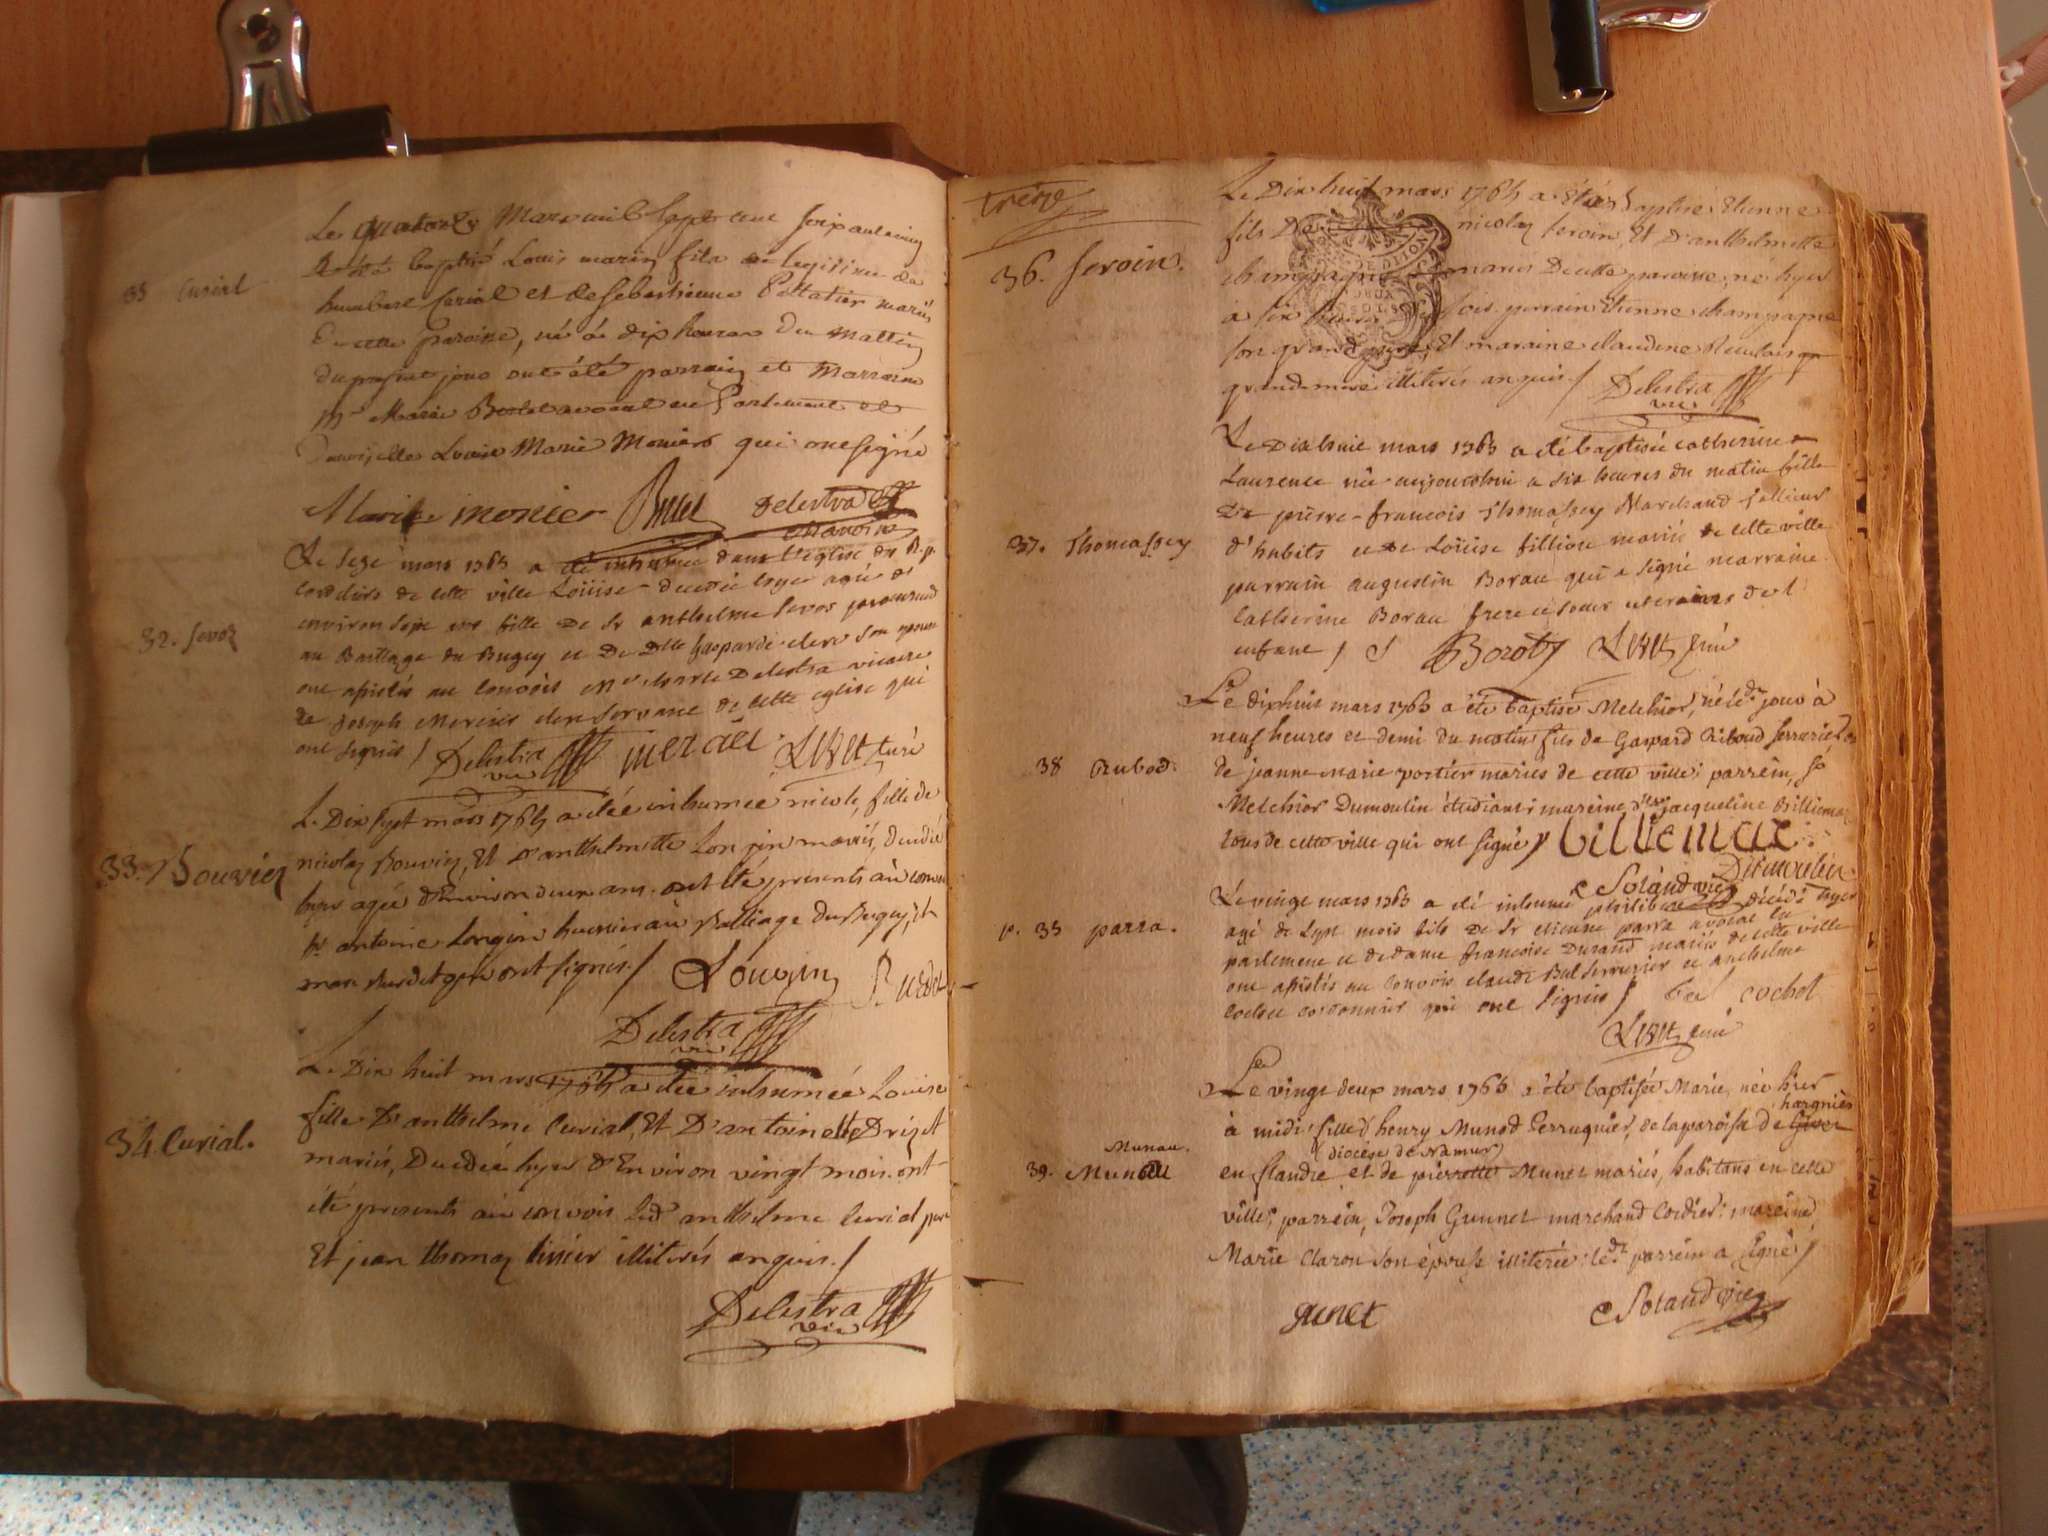 35 Curial
Le quatorze Mars mil sept cent soixante cinq
a été baptisé Louis marin fils legitime de
humbert Curial et de Sebastienne Pellatier mariés
de cette Paroisse, né à dix heures du Mattin
du présent jour ont été parrain et Marraine
Mr Marin Brulet avocat au Parlement et
Demoiselle Louise Marie Monier qui ont signé
Marie monier Delestra
32. Sevoz
Le seze mars 1765 a été inhumée dans l'eglise des R. p.
Cordeliers de cette ville Loüise decedée hyer agée d'
environ sept ans fille de Sr anthelme Sevoz procureur
au Baillage du Bugey et de Dlle Gasparde clerc son epouse
ont assistés au convois Mre Delestra vicaire
et Joseph Mercier clerc servant de cette eglise qui
ont signés / Delestra vic mercier Livet curé
33. Bouvier
Le Dix sept mars 1765 a étée inhumée nicole, fille de
nicolas Bouvier, Et d'anthelmette Longin mariés, decedée
hyer agée d'Environ deux ans. ont été presents au convoi
Sr antoine Longin huissier au Bailliage du Bugey, Et
qui ont signés. / Longin
Delestra vic
34. Curial.
Le Dix huit mars 1765 a étée inhumée Louise
fille D'anthelme Curial, Et D'antoinette Drizet
mariés, Decedée hyer d'Environ vingt mois. ont
été presents au convois led anthelme Curial pere
Et jean thomas tissier illiterés enquis. /
Delestra vic
treize
36. Seroin.
Le Dix huit mars 1765 a été Baptisé Etienne
fils De nicolas Seroin, Et D'anthelmette
champagne mariés De cette paroisse, né hyer
à six heures soir. parrain Etienne champagne
son grand pere, Et maraine claudine
grand-mere illiterés enquis. / Delestra vic
37. Thomassey
Le Dixhuit mars 1765 a été baptisée Catherine
Laurence née aujourdhui a six heures du matin fille
de pierre-francois Thomassey Marchand
d'habits et de Loüise fillion mariés de cette ville
parrain augustin Borau qui a signé marraine
Catherine Borau frere et soeur uterains de l'
enfant / Livet curé
38 Rubod.
Le dixhuit mars 1765 a été baptisé Melchior, né led. jour à
neuf heures et demi du matin fils de Gaspard Riboud serrurier et
de jeanne Marie portier mariés de cette ville; parrein, Sr
Melchior Dumoulin étudiant; mareine, dlle jacqueline Billiemaz
tous de cette ville qui ont signé / billiemaz
Dumoulin
Soland vic
p. 35 parra.
Le vingt mars 1765 a été inhumé philibert décédé hyer
agé de sept mois fils de Sr etienne parra avocat en
parlement et de dame francoise Durand mariés de cette ville
ont assistés au convois claude Bal serrurier et anthelme
Cochet cordonnier qui ont signés / bal cochet
Livet curé
39. Munau
Munau.
Le vingt deux mars 1765 a été baptisée Marie, née hier
à midi: fille d'henry Munod Perruquier, de la paroisse de hargnies
(diocèse de Namur)
en flandre et de pierrette Munet mariés, habitans en cette
ville; parrein, Joseph Gunnet marchand Cordier: mareine
Marie Claron son épouse illiterée: led. parrein a signé /
gunet Soland vic